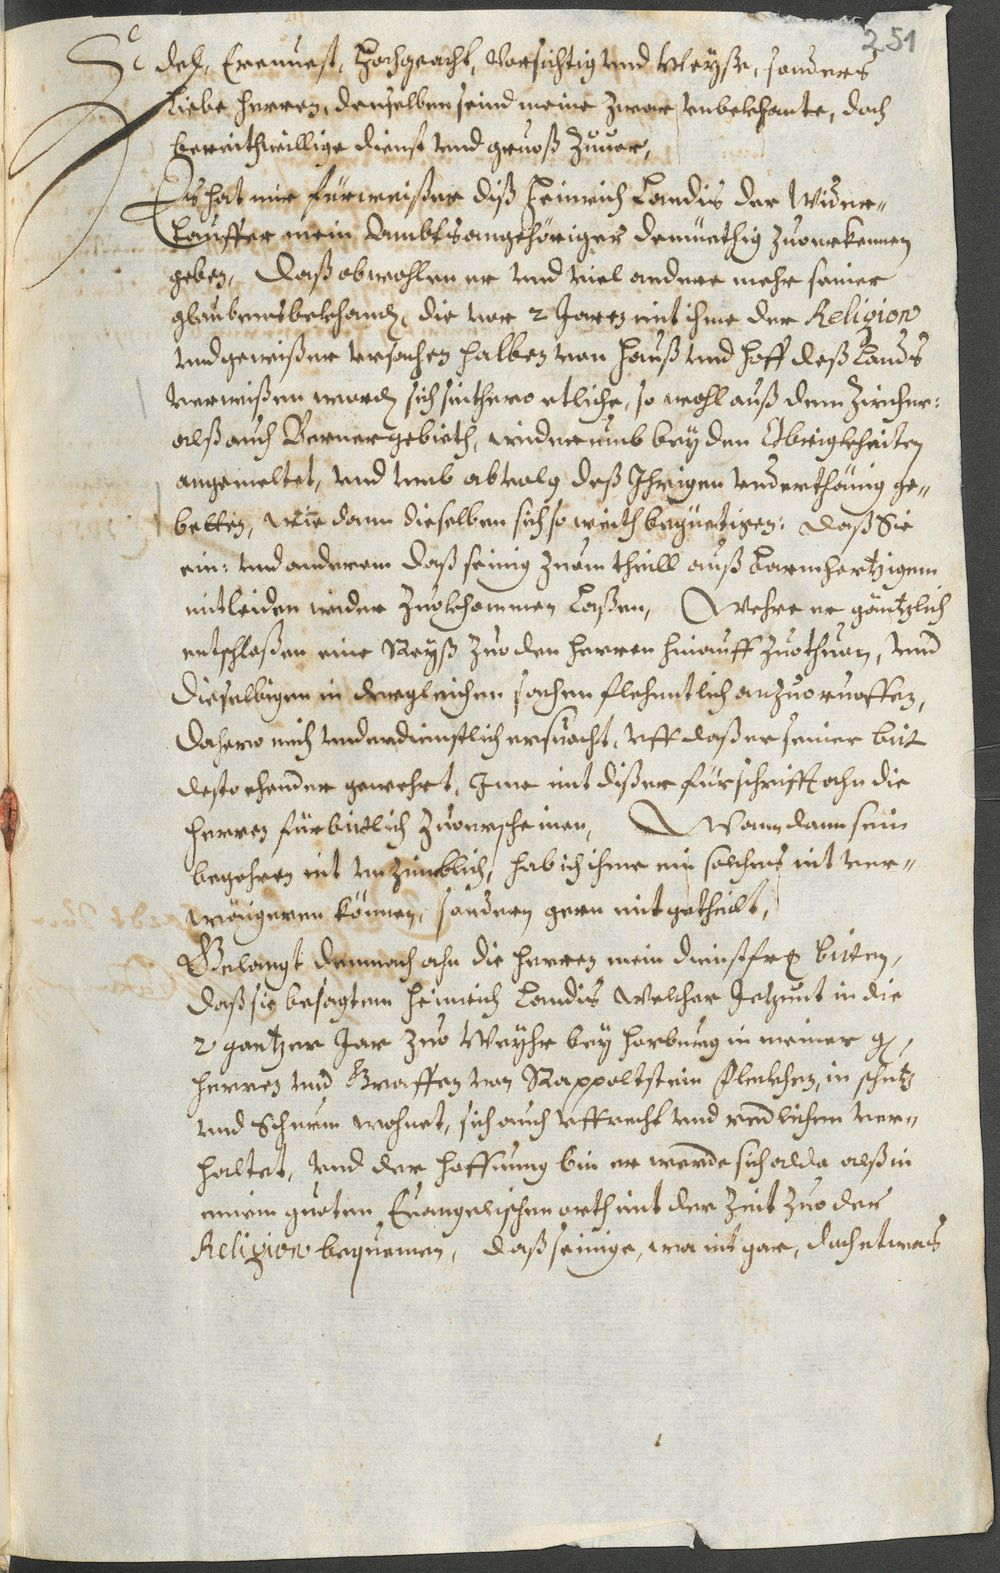 251
Edel, Ernnuest, Hochgeacht, Vorsichtig und Weyße, sonders
Liebe herren, denselben seind meine zwar unbekhante, doch
bereithwillige dienst und gruoß zuuor,
Es hat mir fürweißer diß Heinrich Landis der Wider„
tauffer mein Ambtsangehöriger demüethig zuoerkennen
geben, daß obwohlen er und viel andere mehr seiner
glaubensbekhandten, die vor 2 Jaren mit ihme der Religion
und gewißer ursachen halben von Hauß und Hoff deß Lands
verwißen worden, sich sithero etliche, so wohl auß dem Zürcher:
alß auch Bernergebieth, widerumb bey den Obrigkheiten
angemeltet, und umb abvolg deß Ihrigen underthänig ge„
betten, wie dann dieselben sich so weith begüetigen: daß Sie
ein: und anderem daß seinig zuom theill auß Barmhertzigem
mitleiden wider zuokhommen Laßen, Wehre er gäntzlich
entschloßen eine Reyß zuo den herren hinauff zuothuon, und
dieselbigen in dergleichen sachen flehentlich anzuoruoffen,
dahero mich underdienstlich ersuocht, uff daß er seiner bitt
desto ehender gewehrt, Ime mit dißer fürschrifft ahn die
herren fürbittlich zuoerscheinen, Wann dann sein
begehren nit unzimblich, hab ich ihme ein solches nit ver„
wäigeren können, sondern gern mitgetheilt,
Gelangt demnach ahn die herren mein dienstfr. bitten,
daß sie besagtem Heinrich Landis welcher Jetzunt in die
2 gantzer Jar zuo Weyhr bey Horburg in meiner g.
herren und Graffen von Rappoltstein Fleckhen, in schutz
und Schirm wohnet, sich auch uffrecht und redlichen ver„
haltet, und der hoffnung bin er werde sich alda alß in
einem guoten Euangelischen orth mit der Zeit zuo der
Religion bequemen, daß seinige, wa nit gar, doch etwas